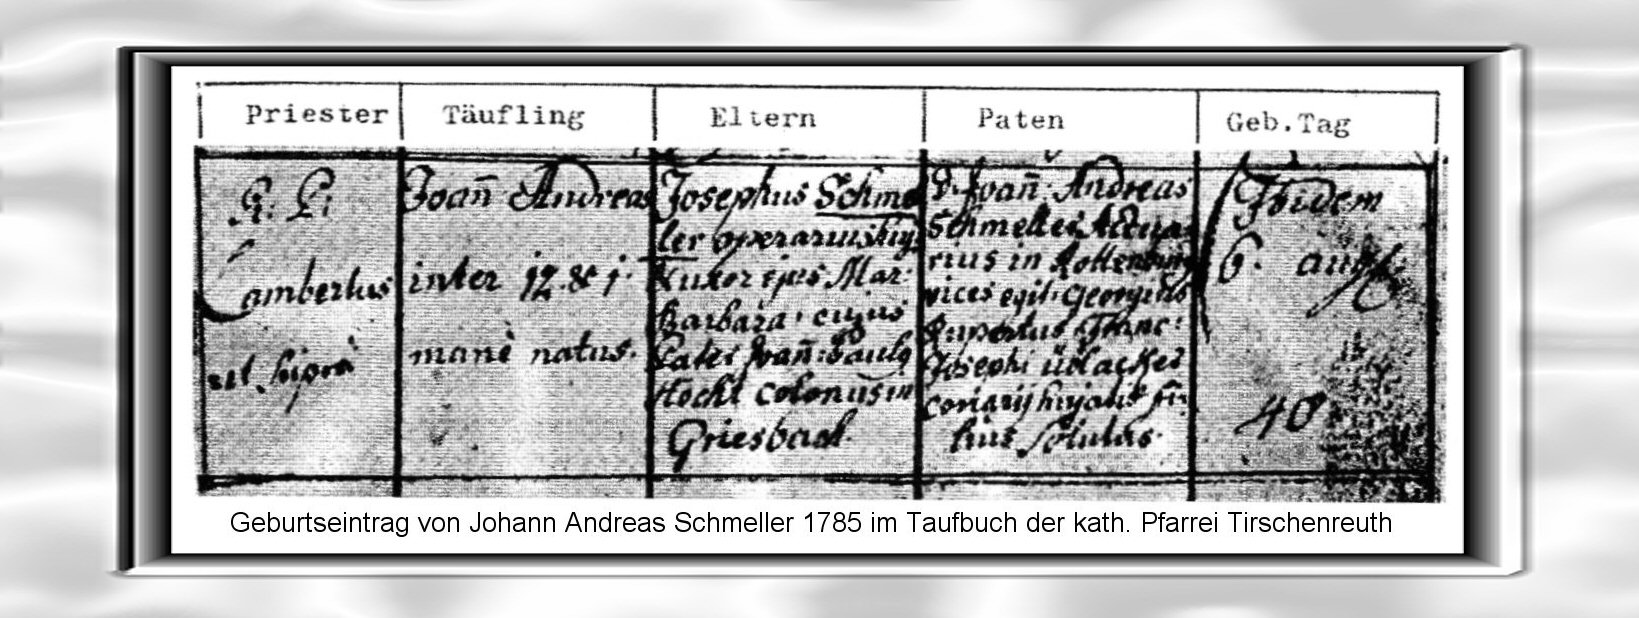 Priester
Täufling
Eltern
Paten
Geb. Tag
Lambertus
ut supra
Joan̄ Andreas
inter 12. & 1.
manè natus.
Josephus Schme
ler
Uxor ejus Mar:
Barbara, cujus
Pater Joan̄:
colonus in
Griesbach.
D. Joan̄ Andreas
Schmeller Actua
rius in
vices egit Georgius
Josephi
coriarij hujatis fi:
lius solutus.
Ibidem
6. aug.
40
Geburtseintrag von Johann Andreas Schmeller 1785 im Taufbuch der kath. Pfarrei Tirschenreuth